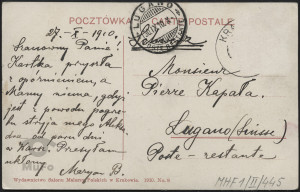 POCZTÓWKA CARTE POSTALE
LUGANO
KRA
27 - X - 1910.
Szanowny Panie!
Kartka przyszła
z opóźnieniem, a
Mamy niema, gdyż
jest z powodu pogrze-
bu stryja mego
od paru dni
w Przesyłam
ukłony
Maryan B.
Monsieur
Pierre Kapała,
Lugano (Suisse)
Poste-restante
Wydawnictwo Salonu Malarzy Polskich w Krakowie. 1910.
MHF 1/II/445